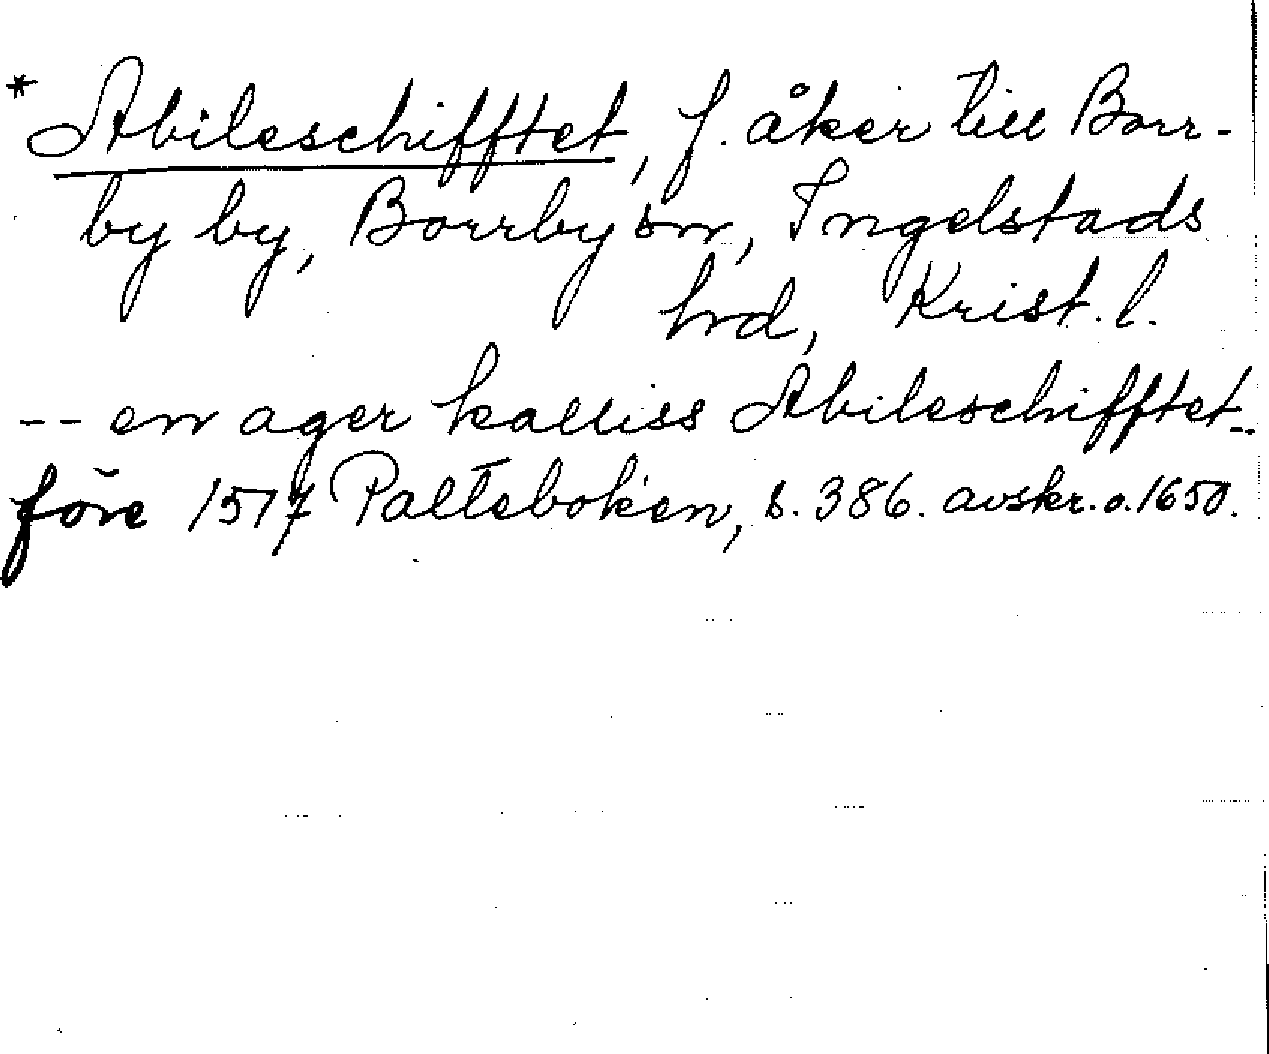 * Abileschifftet, f. åker till Borr-
by by, Borrby sn, Ingelstads
hrd, Krist. l.
-- en ager kalliss Abileschifftet --
före 1517 Palteboken, s. 386. avskr. o. 1650.